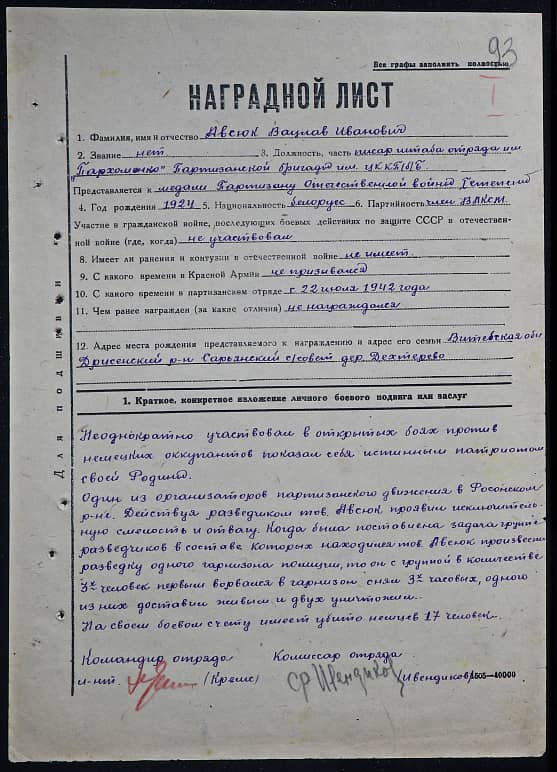 93
Все графы заполнить полностью
НАГРАДНОЙ ЛИСТ
I
1. Фамилия, имя и отчество Авсюк Вацлав Иванович
2. Звание нет 3. Должность, часть писар штаба отряда им.
"Пархоменко" Партизанской бригады им. ЦККП/б/Б.
Представляется к медали Партизану Отечественной войны I степени
4. Год рождения 1924 5. Национальность белорус 6. Партийность член ВЛКСМ.
Участие в гражданской войне, последующих боевых действиях по защите СССР в отечествен-
ной войне (где, когда) не участвовал
8. Имеет ли ранения и контузии в отечественной войне не имеет.
9. С какого времени в Красной Армии не призывался
10. С какого времени в партизанском отряде с 22 июля 1942 года
11. Чем ранее награжден (за какие отличия) не награждался
12. Адрес места рождения представляемого к награждению и адрес его семьи Витебская обл
Дрисенский р-н Сарьянский с/совет дер. Дехтерево
Для подшивки
1. Краткое, конкретное изложение личного боевого подвига или заслуг
Неоднократно участвовал в открытых боях против
немецких оккупантов показал себя истинным патриотом
своей Родины.
Один из организаторов партизанского движения в Росонском
р-не. Действуя разведчиком тов. Авсюк проявил исключитель-
ную смелость и отвагу. Когда была поставлена задача группе
разведчиков в составе которых находился тов. Авсюк произвести
разведку одного гарнизона полиции, то он с группой в количестве
3х человек первым ворвался в гарнизон снял 3х часовых, одного
из них доставил живым и двух уничтожил.
На своем боевом счету имеет убито немцев 17 человек.
Командир отряда Комиссар отряда
и-нт. (Кремс) (Ивендиков)
4505—40000